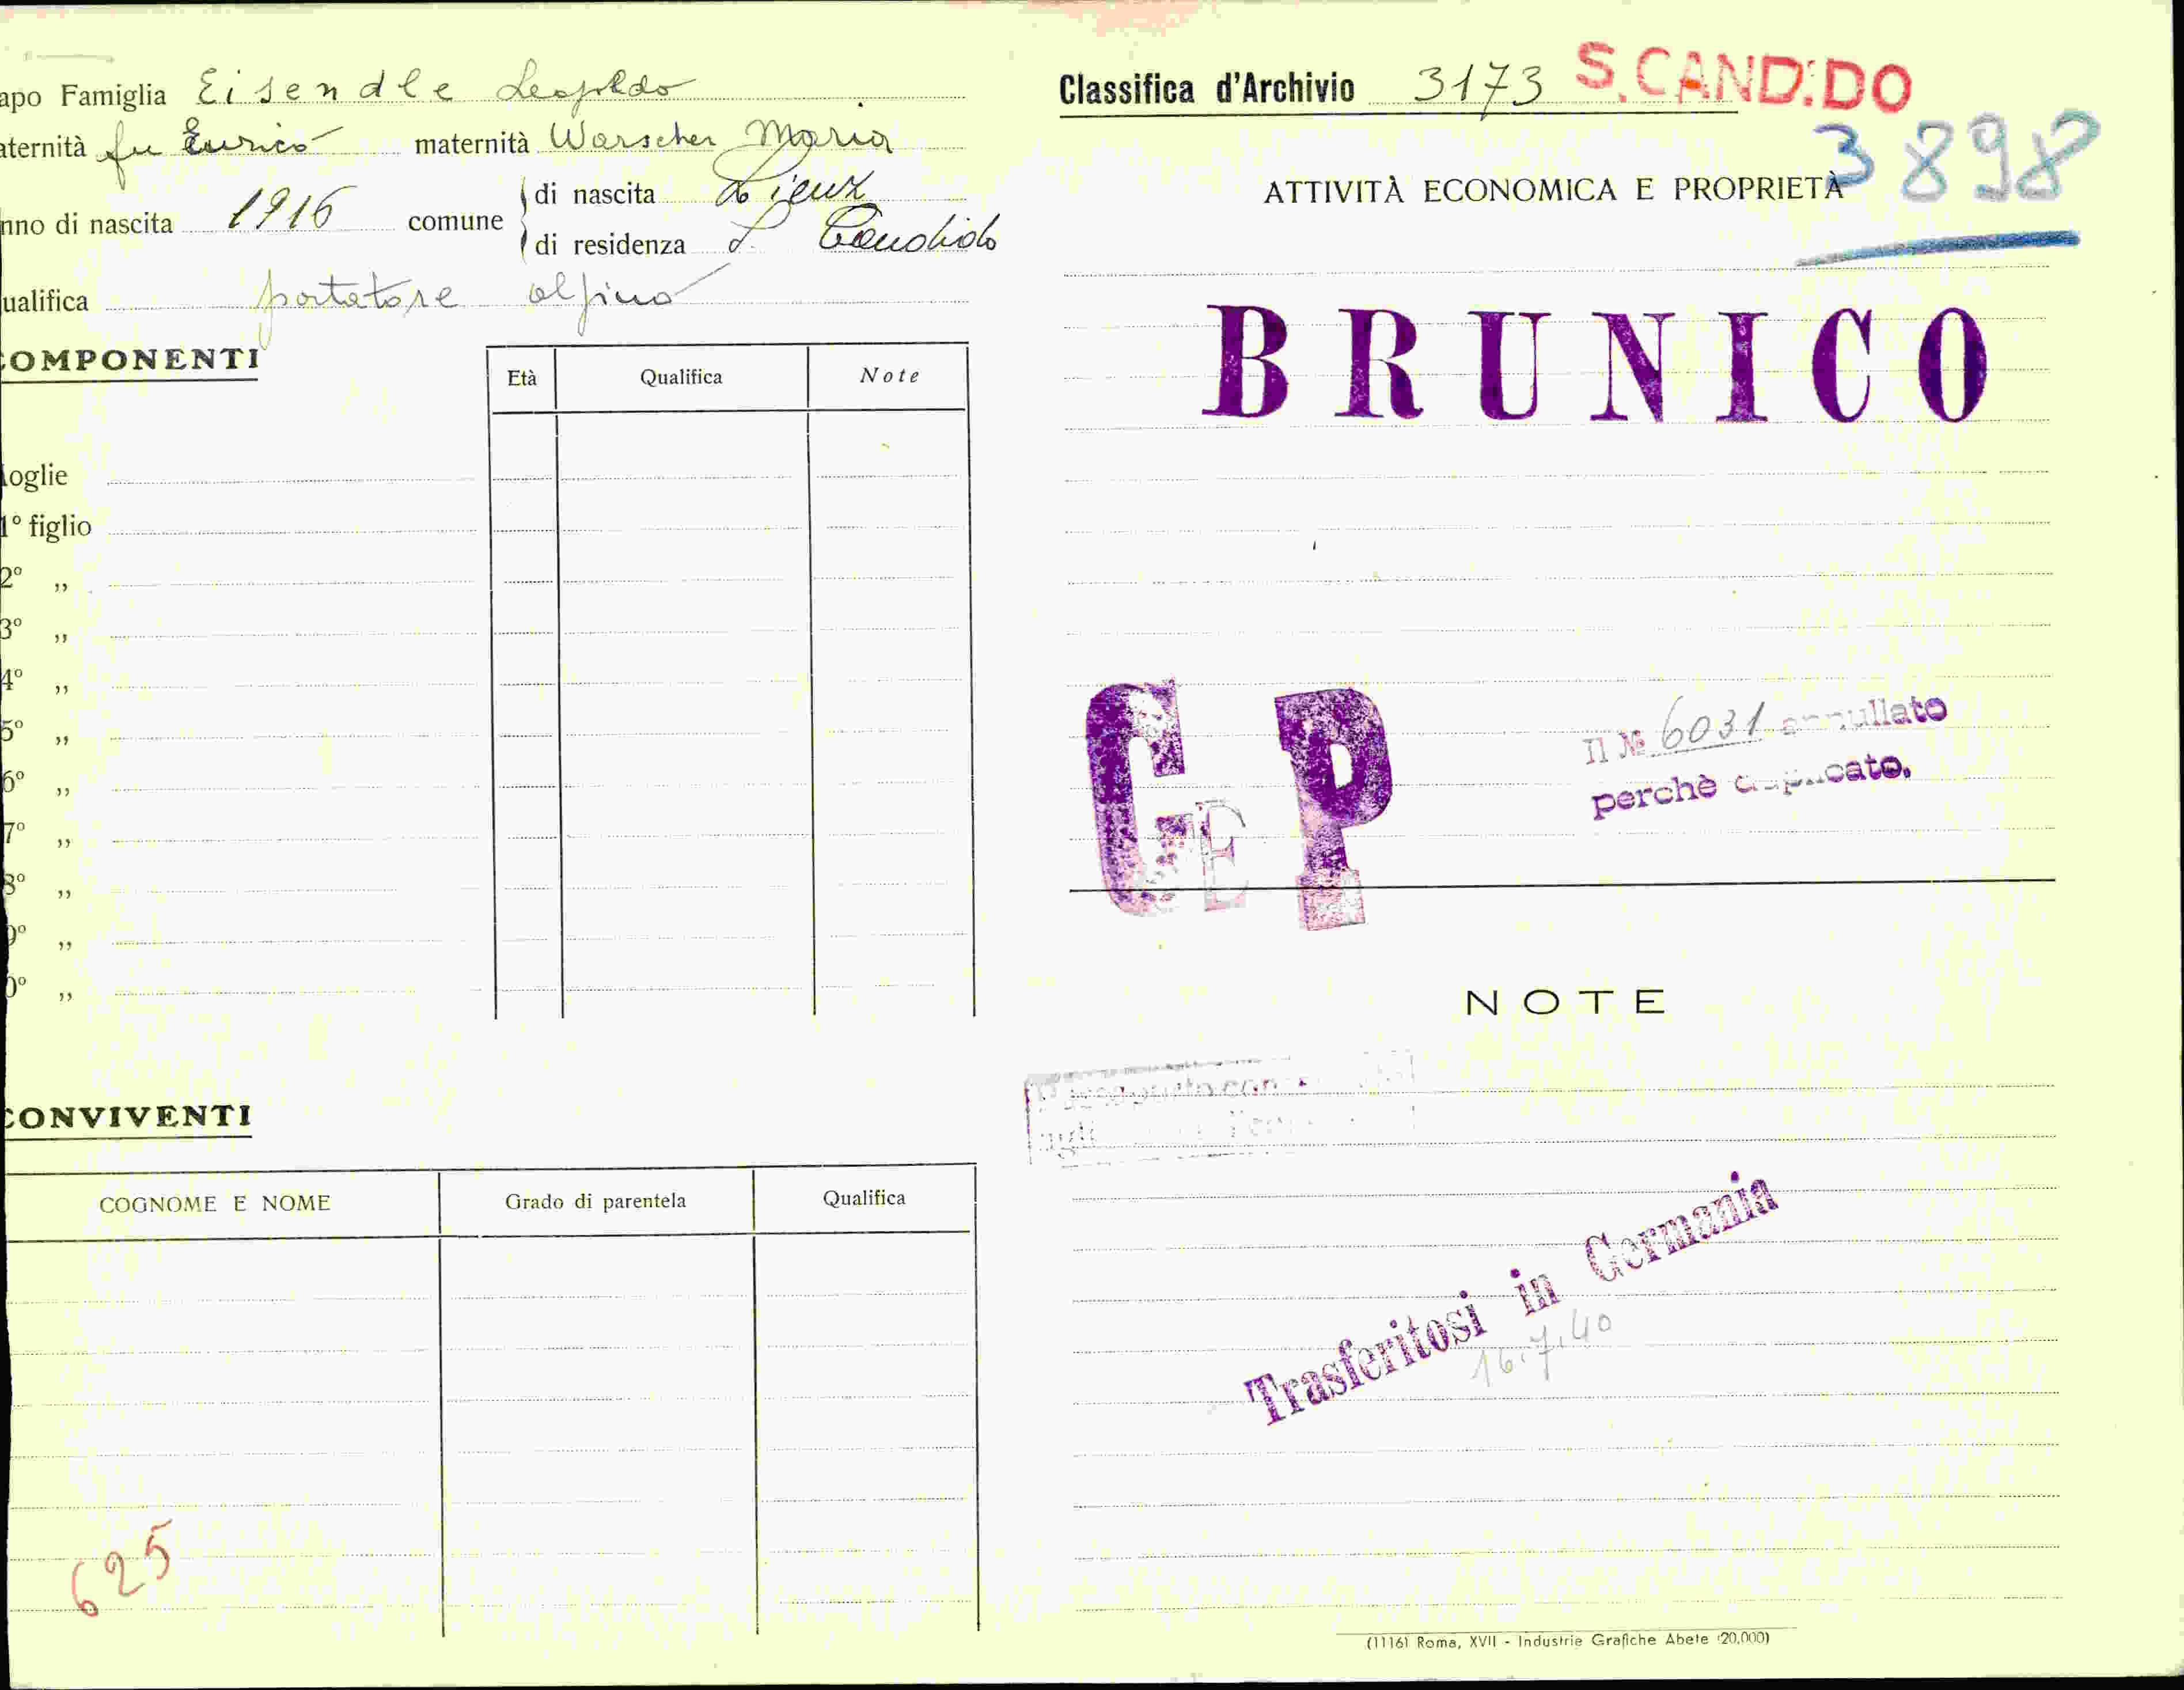 apo Famiglia Eisendle Leopoldo
aternità fu Enrico maternità Warscher Maria
nno di nascita 1916 comune di nascita Lienz
di residenza S. Candido
ualifica portatore alpino
COMPONENTI
Età Qualifica Note
oglie
1º figlio
2º ,,
3º ,,
4º ,,
5º ,,
6º ,,
7º ,,
8º ,,
9º ,,
0º ,,
CONVIVENTI
COGNOME E NOME Grado di parentela Qualifica
625
Classifica d'Archivio 3173 S. CANDIDO
3898
ATTIVITÀ ECONOMICA E PROPRIETÀ
BRUNICO
G E P
Il № 6031 annullato
perchè duplicato.
NOTE
Trasferitosi in Germania
16.7.40
(1116) Roma, XVII - Industrie Grafiche Abete (20.000)